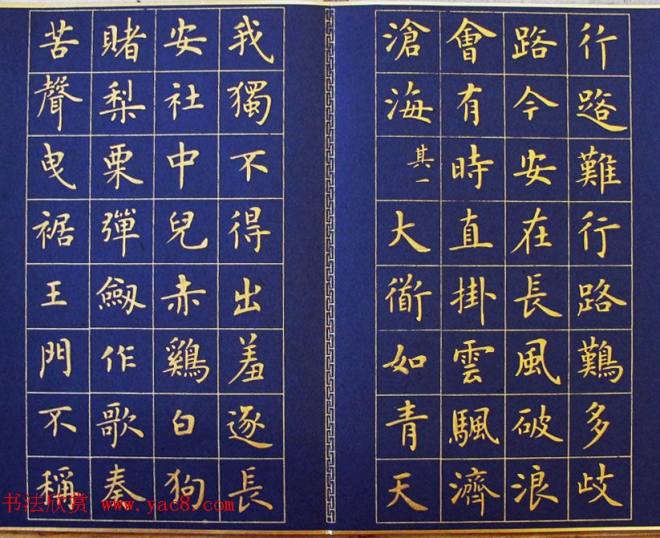 行路難行路難多歧
路今安在長風破浪
會有時直掛雲颿濟
滄海其一大衜如青天
我獨不得出羞逐長
安社中兒赤鷄白狗
賭梨栗彈劒作歌奏
苦聲曳裾王門不稱
书法欣赏 www.yac8.com